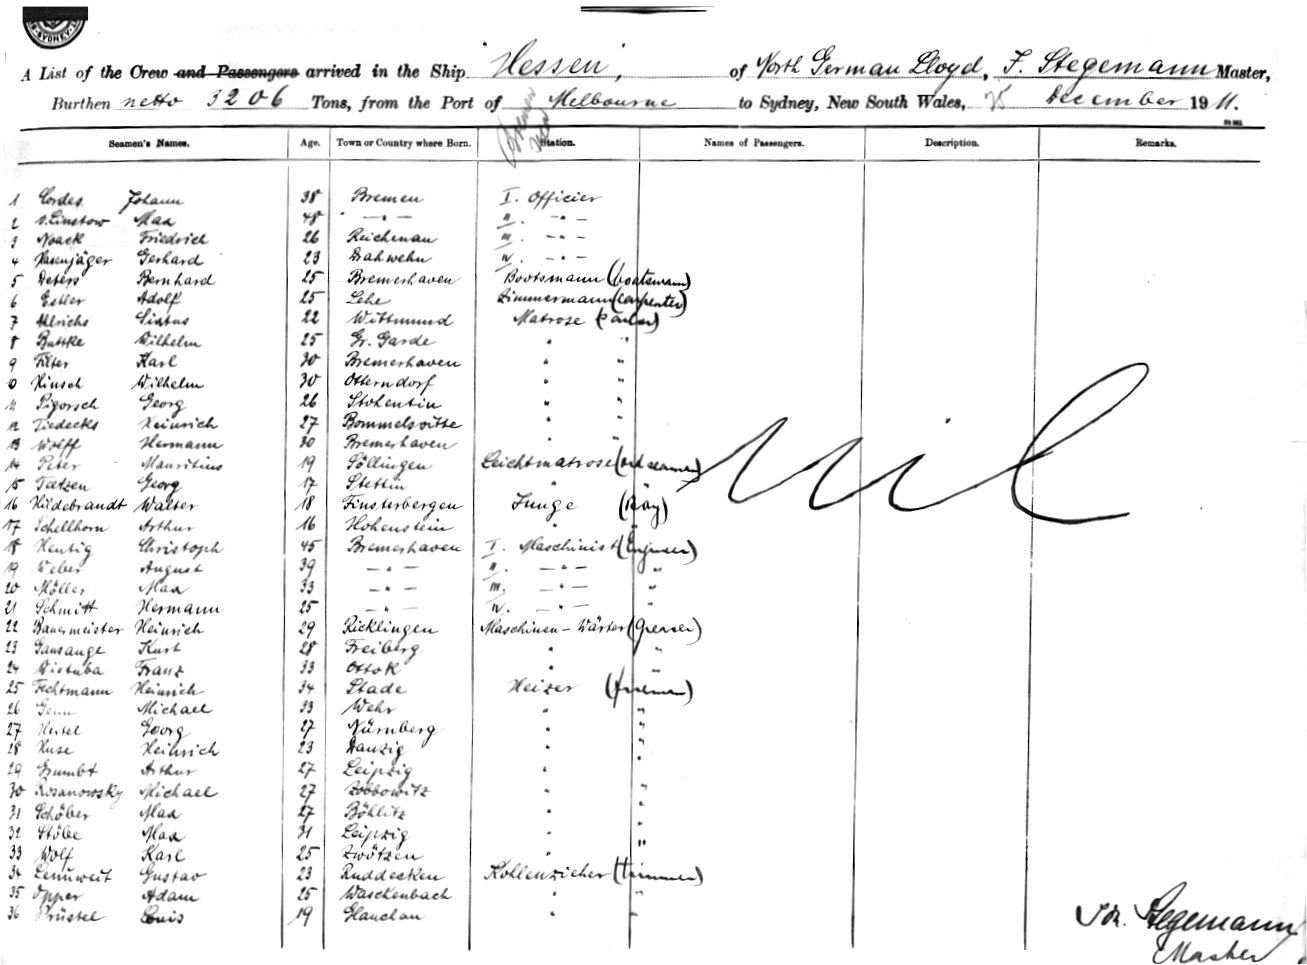 SYDNEY
A List of the Crew and Passengers arrived in the Ship "Hessen", of North German Lloyd, F. Stegemann Master,
Burthen netto 3206 Tons, from the Port of Melbourne to Sydney, New South Wales, 25 December 1911.
Bremen
Seamen's Names. Age. Town or Country where Born. Station. Names of Passengers. Description. Remarks.
1 Cordes Johann 38 Bremen I. Officier
2 v. Linstow Max 48 — " — II. — " —
3 Noack Friedrich 26 Reichenau III. — " —
4 Hasenjäger Gerhard 23 Drahwehn IV. — " —
5 Deters Bernhard 25 Bremerhaven Bootsmann (boatsmann)
6 Estler Adolf 25 Lehe Zimmermann (carpenter)
7 Ahlrichs 22 Wittmund Matrose (sailor)
8 Buttke Wilhelm 25 Gr. Garde " "
9 Filter Karl 30 Bremerhaven " "
10 Hinsch Wilhelm 30 Otterndorf " "
11 Pigorsch Georg 26 Stohentin " "
12 Tiedecks Heinrich 27 Bommelsvitte " "
13 Wolff Hermann 30 Bremerhaven " "
14 Peter Mauritius 19 Söllingen Leichtmatrose (ord seaman)
15 Teetzen Georg 17 Stettin " "
16 Hildebrandt Walter 18 Finsterbergen Junge (Boy)
17 Schellhorn Arthur 16 Hohenstein " "
18 Hentig Christoph 45 Bremerhaven I. Maschinist (Engineer)
19 Weber August 39 — " — II. — " — "
20 Möller Max 33 — " — III. — " — "
21 Schmitt Hermann 25 — " — IV. — " — "
22 Bauermeister Heinrich 29 Ricklingen Maschinen-Wärter (Greaser)
23 Gansauge Kurt 28 Freiberg " "
24 Distuba Franz 33 Ottok " "
25 Fechtmann Heinrich 34 Stade Heizer (firemen)
26 Michael 33 Wehr " "
27 Hertel Georg 27 Nürnberg " "
28 Huse Heinrich 23 Danzig " "
29 Grumbt Arthur 27 Leipzig " "
30 Rosanowsky Michael 27 Zobbowitz " "
31 Schöber Max 27 Böhlitz " "
32 Stöbe Max 31 Leipzig " "
33 Wolf Karl 25 Zwötzen " "
34 Lenuweit Gustav 23 Ruddecken Kohlenzieher (trimmer)
35 Opper Adam 25 Waschenbach " "
36 Prüstel Louis 19 Glauchau " "
nil
Stegemann
Master